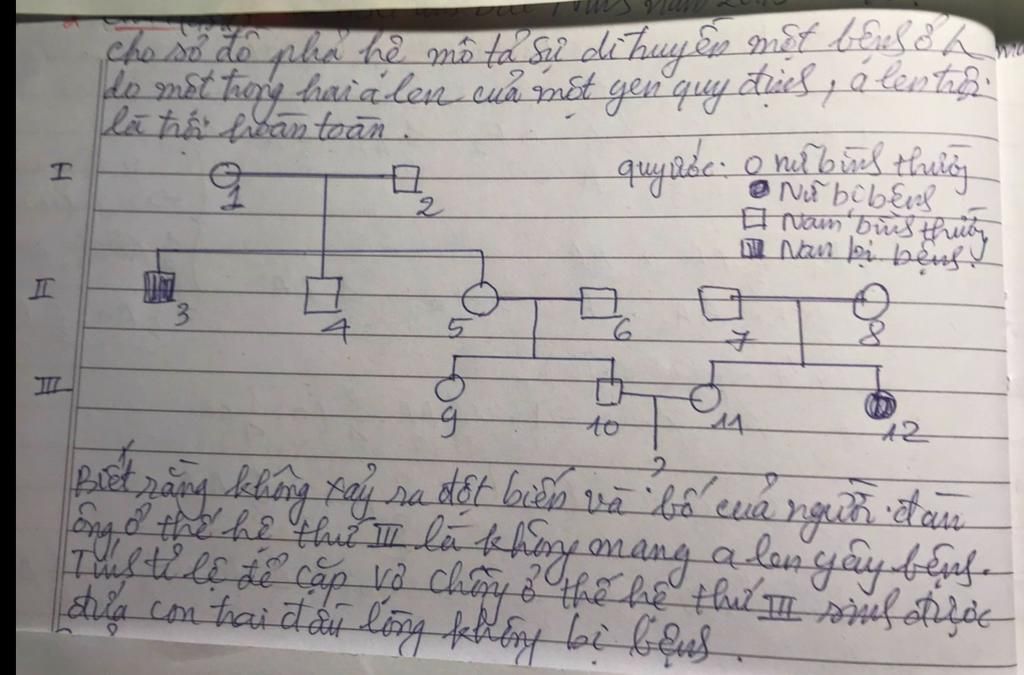 cho sơ đồ phả hệ mô tả sự di truyền một bệnh ở
do một trong hai alen của một gen quy định, alen trội
là trội hoàn toàn.
I
1
2
quy ước: O nữ bình thường
Nữ bị bệnh
Nam bình thường
Nam bị bệnh.
II
3
4
5
6
7
8
III
9
10
11
12
?
Biết rằng không xảy ra đột biến và bố của người đàn
ông ở thế hệ thứ III là không mang alen gây bệnh.
Tính tỉ lệ để cặp vợ chồng ở thế hệ thứ III sinh được
đứa con trai đầu lòng không bị bệnh.